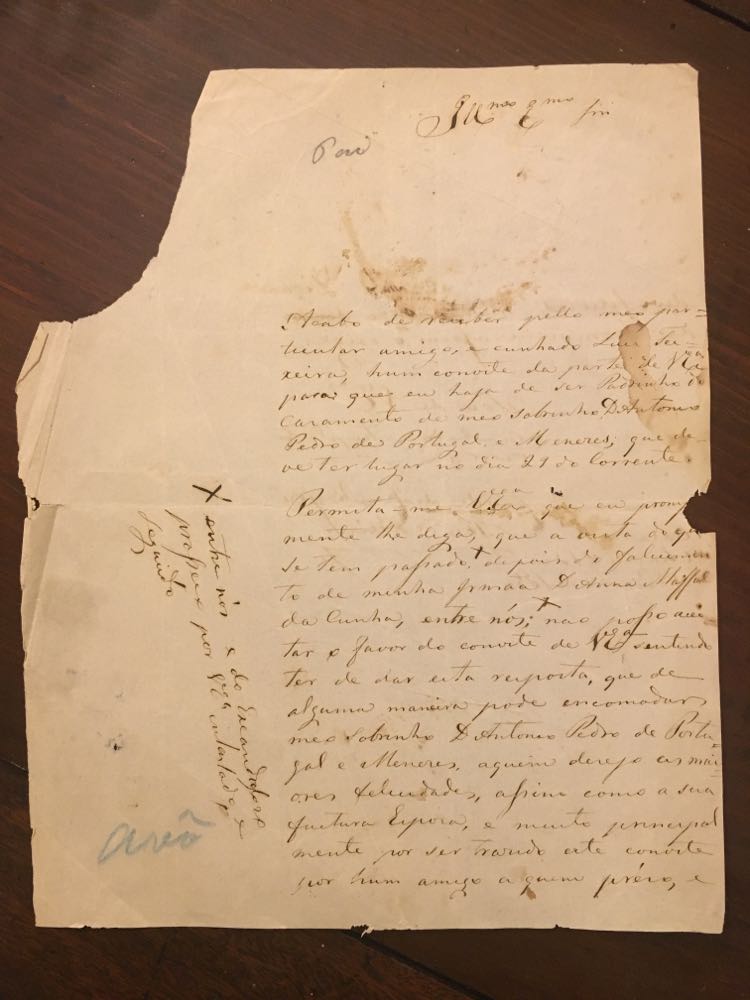 Ill.mo e Ex.mo Snr
Acabo de receber pello meo par=
ticular amigo, e cunhado Luis Tei=
xeira, hum convite da parte de V.Exa
para que eu haja de ser Padrinho do
Cazamento de meo Sobrinho D. Antonio
Pedro de Portugal, e Menezes, que de-
ve ter lugar no dia 21 do Corrente.
Permita-me V.Exa que eu promp
mente lhe diga, que a vista do que
se tem passado, + depois do falicimen
to de minha Irmãa D. Anna
da Cunha, entre nós; + não posso acei
tar o favor do convite de V.Exa sentindo
ter de dar esta resposta, que de
alguma maneira pode encomodar,
meo Sobrinho D. Antonio Pedro de Portu=
gal e Menezes, aquem dezejo as mai=
ores felicidades, assim como a sua
fuctura Espoza, e muito principal
mente por ser trazido este convite
por hum amigo a quem prézo, e
X entre nós e do Escandaloso
processo por V.Exa intentado, e
seguido
avô